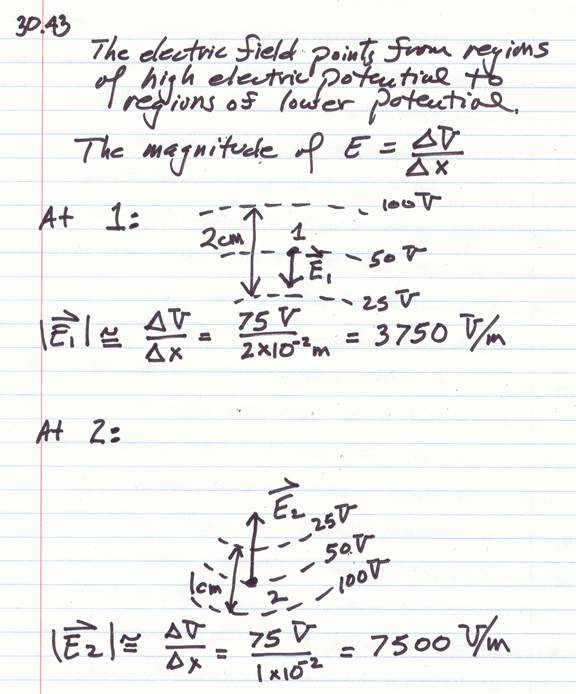 30.43
The electric field points from regions
of high electric potential to
regions of lower potential.
The magnitude of E = ΔV/Δx
At 1:
100 V
2cm
1
50 V
E⃗₁
25 V
|E⃗₁| ≅ ΔV/Δx = 75 V/2×10⁻²m = 3750 V/m
At 2:
E⃗₂
25V
50V
1cm
100V
2
|E⃗₂| ≅ ΔV/Δx = 75 V/1×10⁻² = 7500 V/m